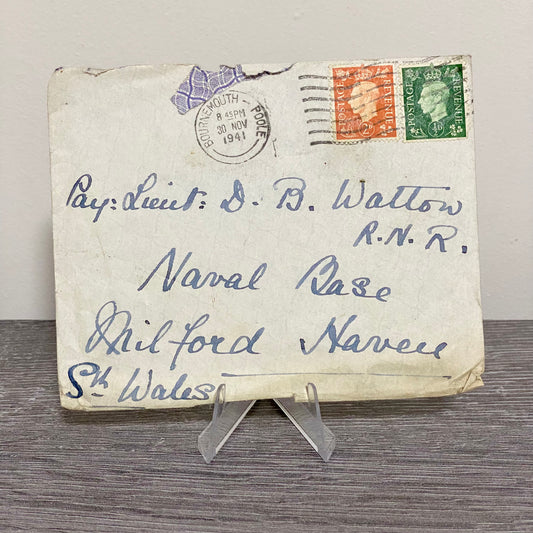 BOURNEMOUTH - POOLE
8 45 PM
30 NOV
1941
POSTAGE REVENUE
POSTAGE REVENUE
Pay: Lieut: D. B. Watton
R.N.R.
Naval Base
Milford Haven
Sth Wales